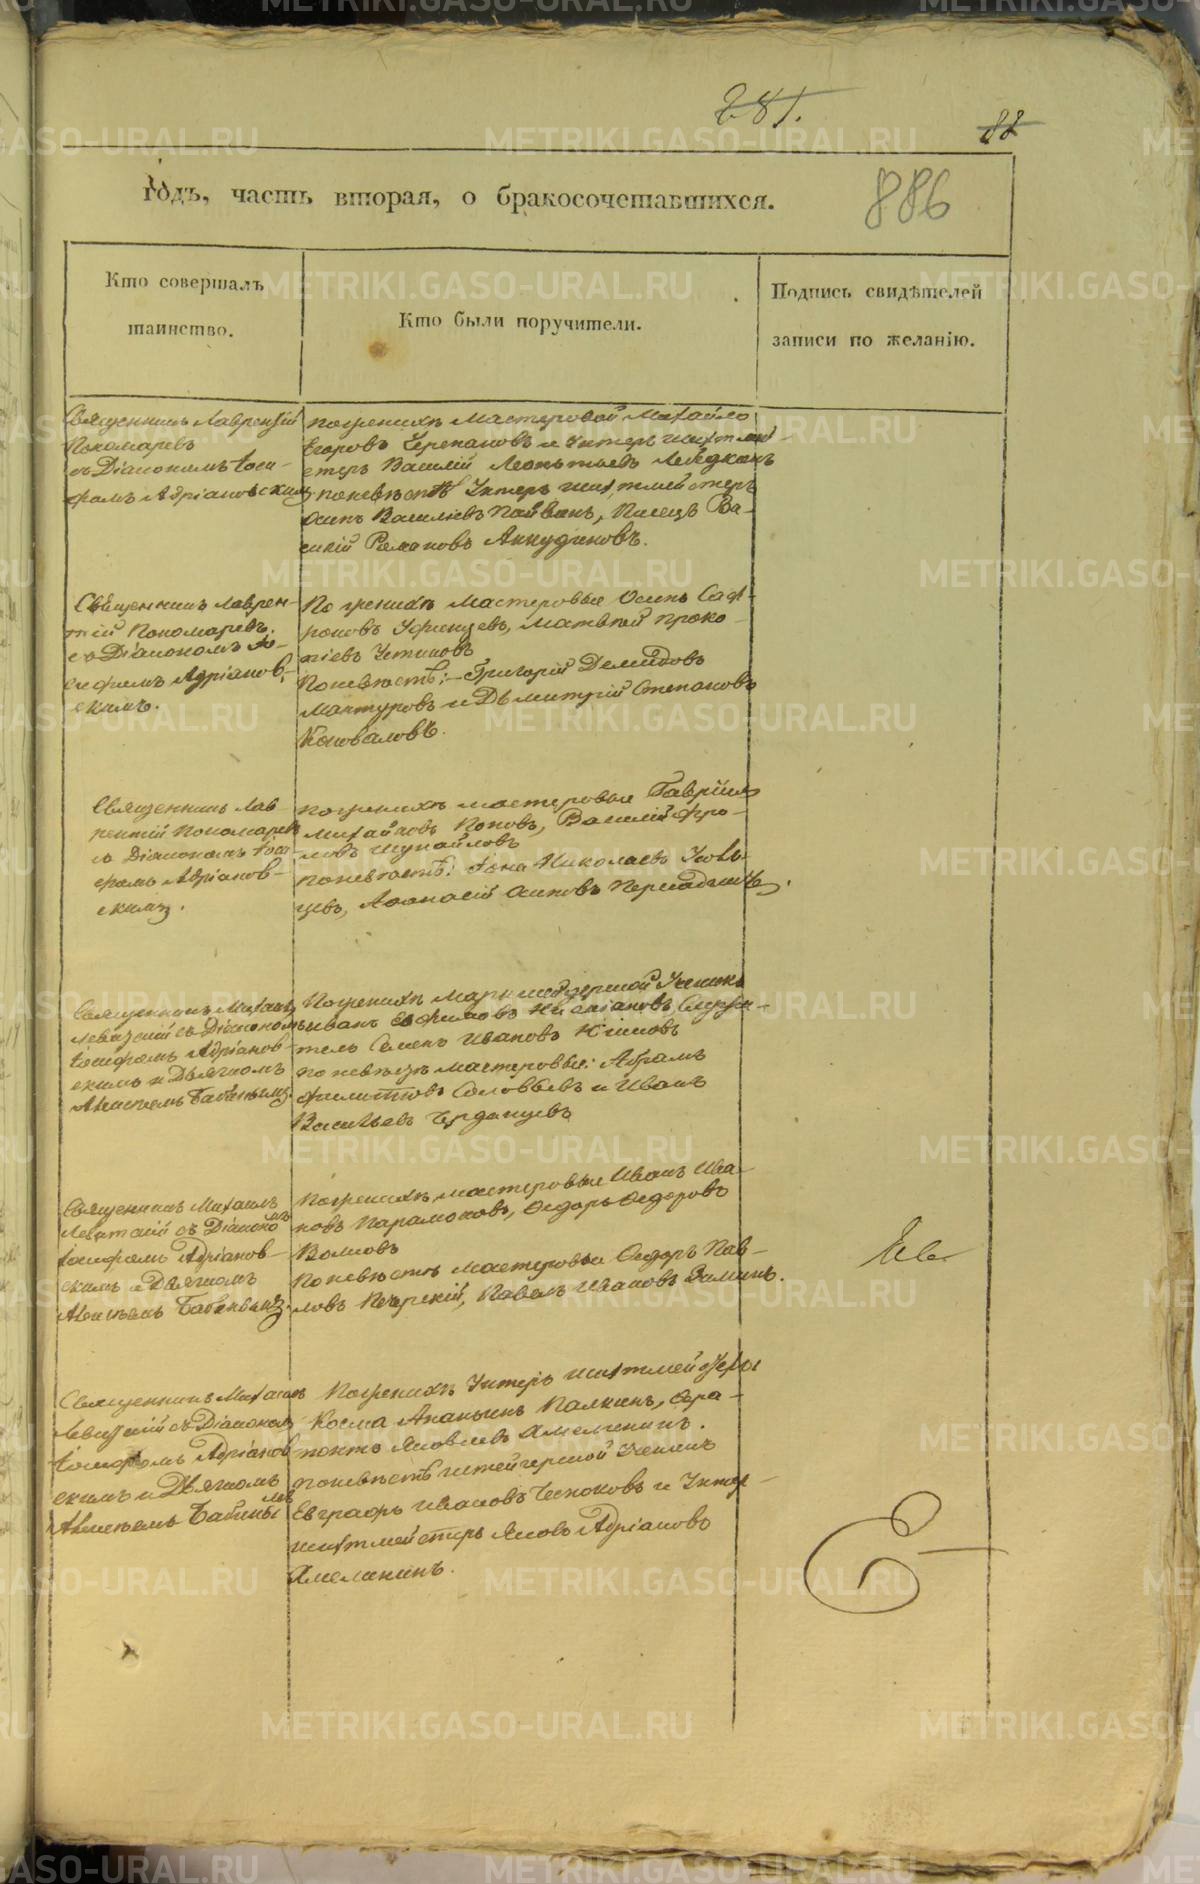 281.
88
886
годъ, часть вторая, о бракосочетавшихся.
Кто совершалъ
таинство.
Кто были поручители.
Подпись свидѣтелей
записи по желанію.
Священникъ Лаврентій
Пономаревъ
съ Діакономъ Іоси-
фомъ Адріановскимъ
по женихѣ Мастеровой Михайло
Егоровъ Черепановъ и Унтеръ шихтмей-
стеръ Василій Леонтьевъ
по невѣстѣ Унтеръ шихтмейстеръ
Осипъ Васильевъ Пайвинъ, Писецъ Ва-
силій Романовъ Анкудиновъ.
Священникъ Лаврен-
тій Пономаревъ
съ Діакономъ Іо-
сифомъ Адріанов-
скимъ.
По женихѣ Мастеровые Осипъ Саф-
роновъ Уфинцевъ, Матвѣй Проко-
піевъ Устиновъ
По невѣстѣ: Григорій Демидовъ
Мантуровъ и Дъмитрій Степановъ
Коноваловъ.
Священникъ Лав-
рентій Пономаревъ
съ Діакономъ Іоси-
фомъ Адріанов-
скимъ.
по женихѣ мастеровые Гавріилъ
Михайловъ Поповъ, Василій Фро-
ловъ Шупайловъ
по невѣстѣ: Іона Николаевъ
цевъ, Афонасій Осиповъ
Священникъ Михаилъ
Левитскій съ Діакономъ
Іосифомъ Адріанов-
скимъ и Дьячкомъ
Алексѣемъ Бабинымъ
По женихѣ Маркшейдерской Ученикъ
Иванъ Ефимовъ Служи-
тель Семенъ Ивановъ
по невѣстѣ мастеровые: Абрамъ
Филиповъ Соловьевъ и Иванъ
Васильевъ Черданцевъ
Священникъ Михаилъ
Левитскій съ Діакономъ
Іосифомъ Адріанов-
скимъ и Дьячкомъ
Алексѣемъ Бабинымъ.
По женихѣ мастеровые Иванъ Ива-
новъ Парамоновъ, Федоръ Федоровъ
Волковъ
По невѣстѣ мастеровые Федоръ Пав-
ловъ Печерскій, Павелъ Ивановъ Зиминъ.
Священникъ Михаилъ
Левитскій съ Діакономъ
Іосифомъ Адріанов-
скимъ и Дьячкомъ
Алексѣемъ Бабинымъ
По женихѣ Унтеръ шихтмейстеры
Косма Ананьинъ Палкинъ, Фера-
понтъ Яковлевъ Амелинкинъ.
по невѣстѣ штейгерской Ученикъ
Евграфъ Ивановъ Чесноковъ и Унтер-
шихтмейстеръ Яковъ Адріановъ
Амелинкинъ.
METRIKI.GASO-URAL.RU